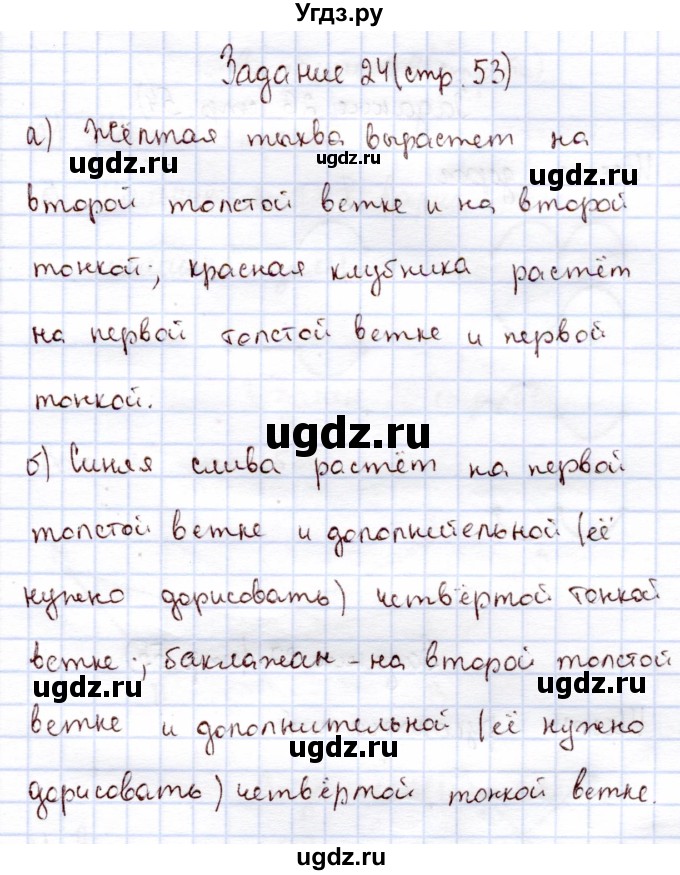 Угдз.ру
Задание 24(стр. 53)
а) Жёлтая тыква вырастет на
ugdz.ru ugdz.ru ugdz.ru
второй толстой ветке и на второй
тонкой; красная клубника растёт
на первой толстой ветке и первой
тонкой.
ugdz.ru
б) Синяя слива растёт на первой
толстой ветке и дополнительной (её
нужно дорисовать) четвёртой тонкой
ветке; баклажан - на второй толстой
ugdz.ru ugdz.ru
ветке и дополнительной (её нужно
ugdz.ru
дорисовать) четвёртой тонкой ветке.
ugdz.ru